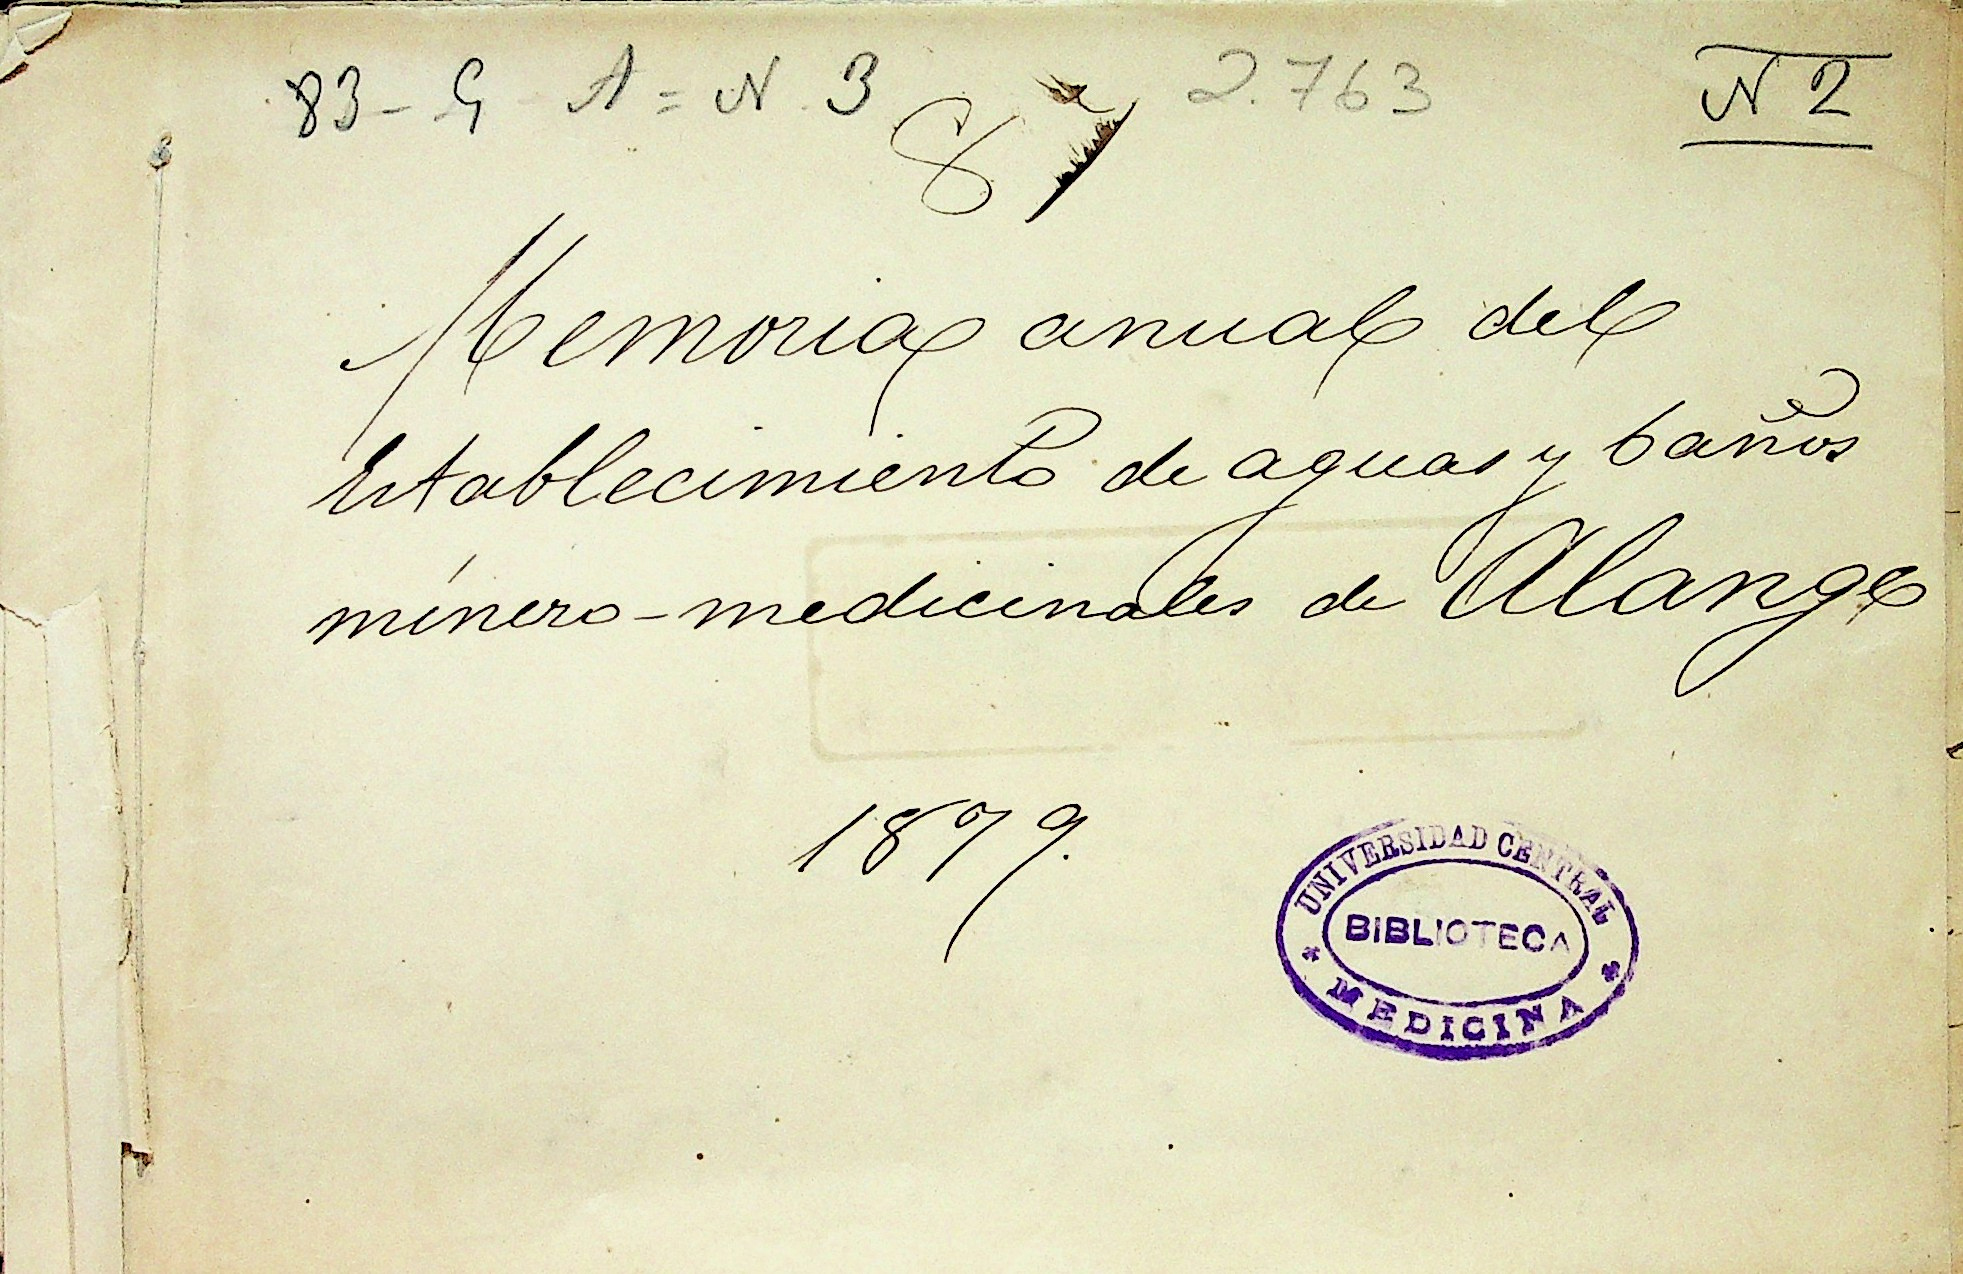 83 - G A = N 3 2.763 N 2
87
Memoria anual del
Establecimiento de aguas y baños
mínero-medicinales de Alange
1879.
UNIVERSIDAD CENTRAL
BIBLIOTECA
* MEDICINA *